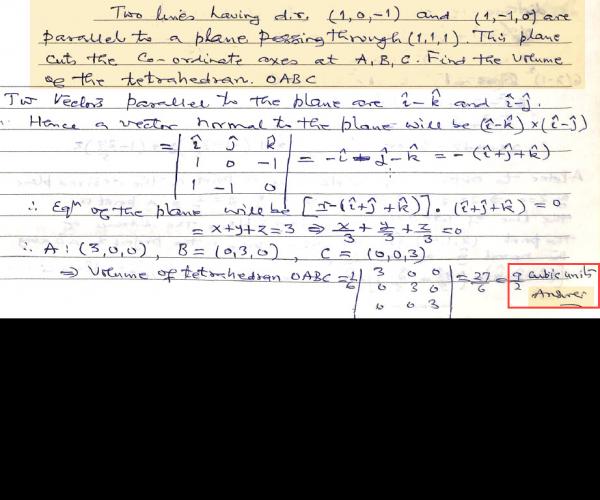 Two lines having d.r. (1,0,-1) and (1,-1,0) are
parallel to a plane passing through (1,1,1). This plane
cuts the Co-ordinate axes at A, B, C. Find the volume
of the tetrahedran. OABC
Tw Vectors parallel to the plane are î-k̂ and î-ĵ.
Hence a vector normal to the plane will be (î-k̂)×(î-ĵ)
= | î ĵ k̂ |
| 1 0 -1 | = -î-ĵ-k̂ = -(î+ĵ+k̂)
| 1 -1 0 |
∴ Eqⁿ of the plane will be [r-(î+ĵ+k̂)].(î+ĵ+k̂)=0
= x+y+z=3 ⇒ x/3+y/3+z/3=0
∴ A:(3,0,0), B=(0,3,0), C=(0,0,3)
⇒ Volume of tetrahedran OABC = 1/6 | 3 0 0 | = 27/6 = 9/2 cubic units
| 0 3 0 | Answer
| 0 0 3 |